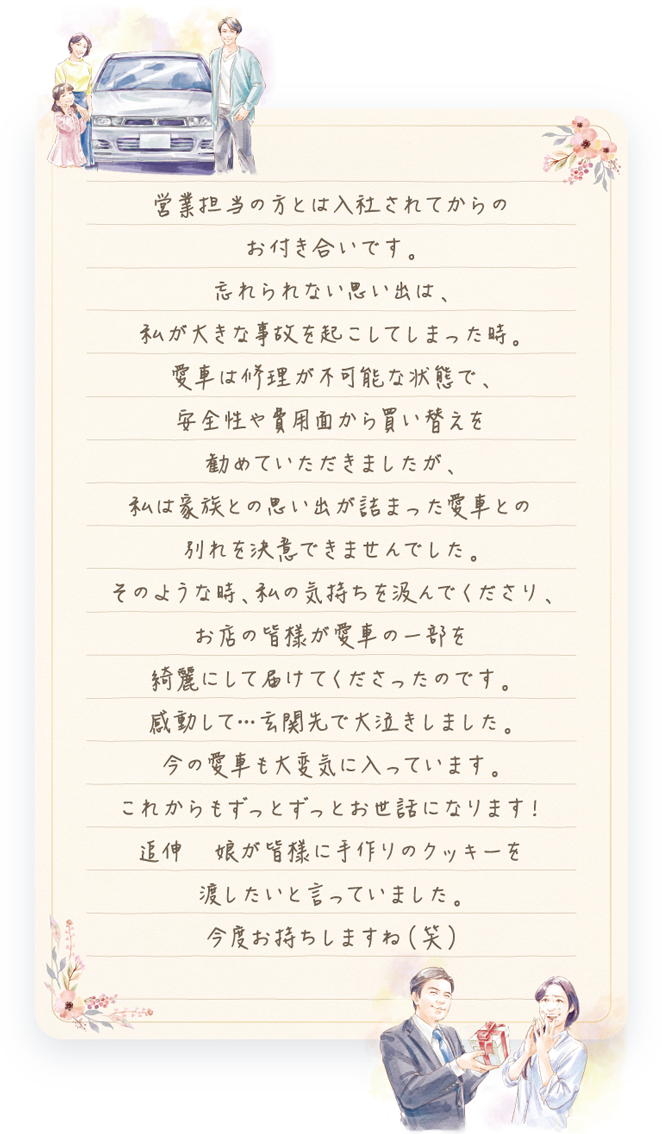 営業担当の方とは入社されてからの
お付き合いです。
忘れられない思い出は、
私が大きな事故を起こしてしまった時。
愛車は修理が不可能な状態で、
安全性や費用面から買い替えを
勧めていただきましたが、
私は家族との思い出が詰まった愛車との
別れを決意できませんでした。
そのような時、私の気持ちを汲んでくださり、
お店の皆様が愛車の一部を
綺麗にして届けてくださったのです。
感動して…玄関先で大泣きしました。
今の愛車も大変気に入っています。
これからもずっとずっとお世話になります！
追伸　娘が皆様に手作りのクッキーを
渡したいと言っていました。
今度お持ちしますね(笑)